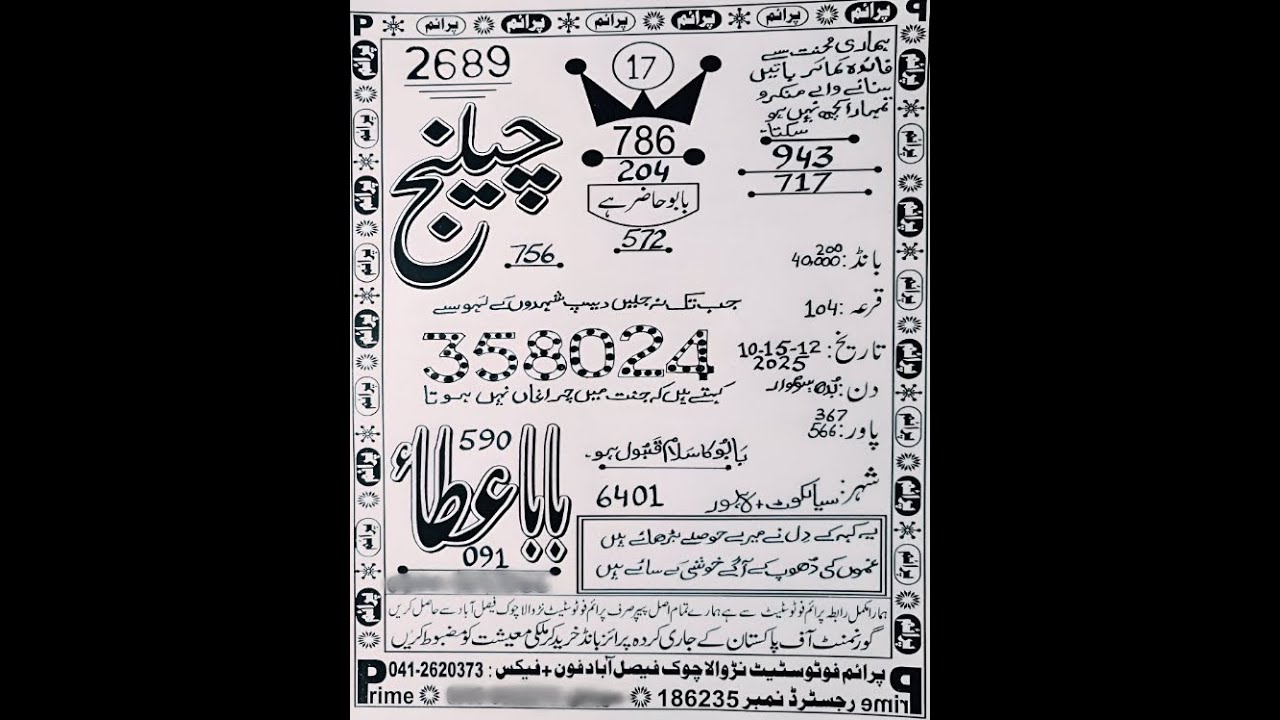 پرائم پرائم پرائم پرائم پرائم پرائم پرائم
2689
17
ہماری محنت سے
فائدہ کما کر باتیں
بنانے والے منکرو
تمہارا کچھ نہیں ہو
سکتا۔
چیلنج
786
204
943
717
بابو حاضر ہے
572
756
بانڈ: 200
40,000
قرعہ: 104
تاریخ: 10-15-12
2025
دن: بُدھ
پاور: 367
566
جب تک نہ جلیں دیپ شہیدوں کے لہو سے
358024
کہتے ہیں کہ جنت میں چراغاں نہیں ہوتا
بابا عطاء
590
091
بابُو کا سَلام قَبُول ہو۔
شہر: سیالکوٹ + لاہور
6401
یہ کہہ کے دِل نے میرے حوصلے بڑھائے ہیں
غموں کی دُھوپ کے آگے خوشی کے سائے ہیں
ہمارا مکمل رابطہ پرائم فوٹوسٹیٹ سے ہے ہمارے تمام اصل پیپر صرف پرائم فوٹوسٹیٹ نڑوالا چوک فیصل آباد سے حاصل کریں
گورنمنٹ آف پاکستان کے جاری کردہ پرائز بانڈ خرید کر ملکی معیشت کو مضبوط کریں
پرائم فوٹوسٹیٹ نڑوالا چوک فیصل آباد فون + فیکس : 041-2620373
Prime رجسٹرڈ نمبر 186235 Prime